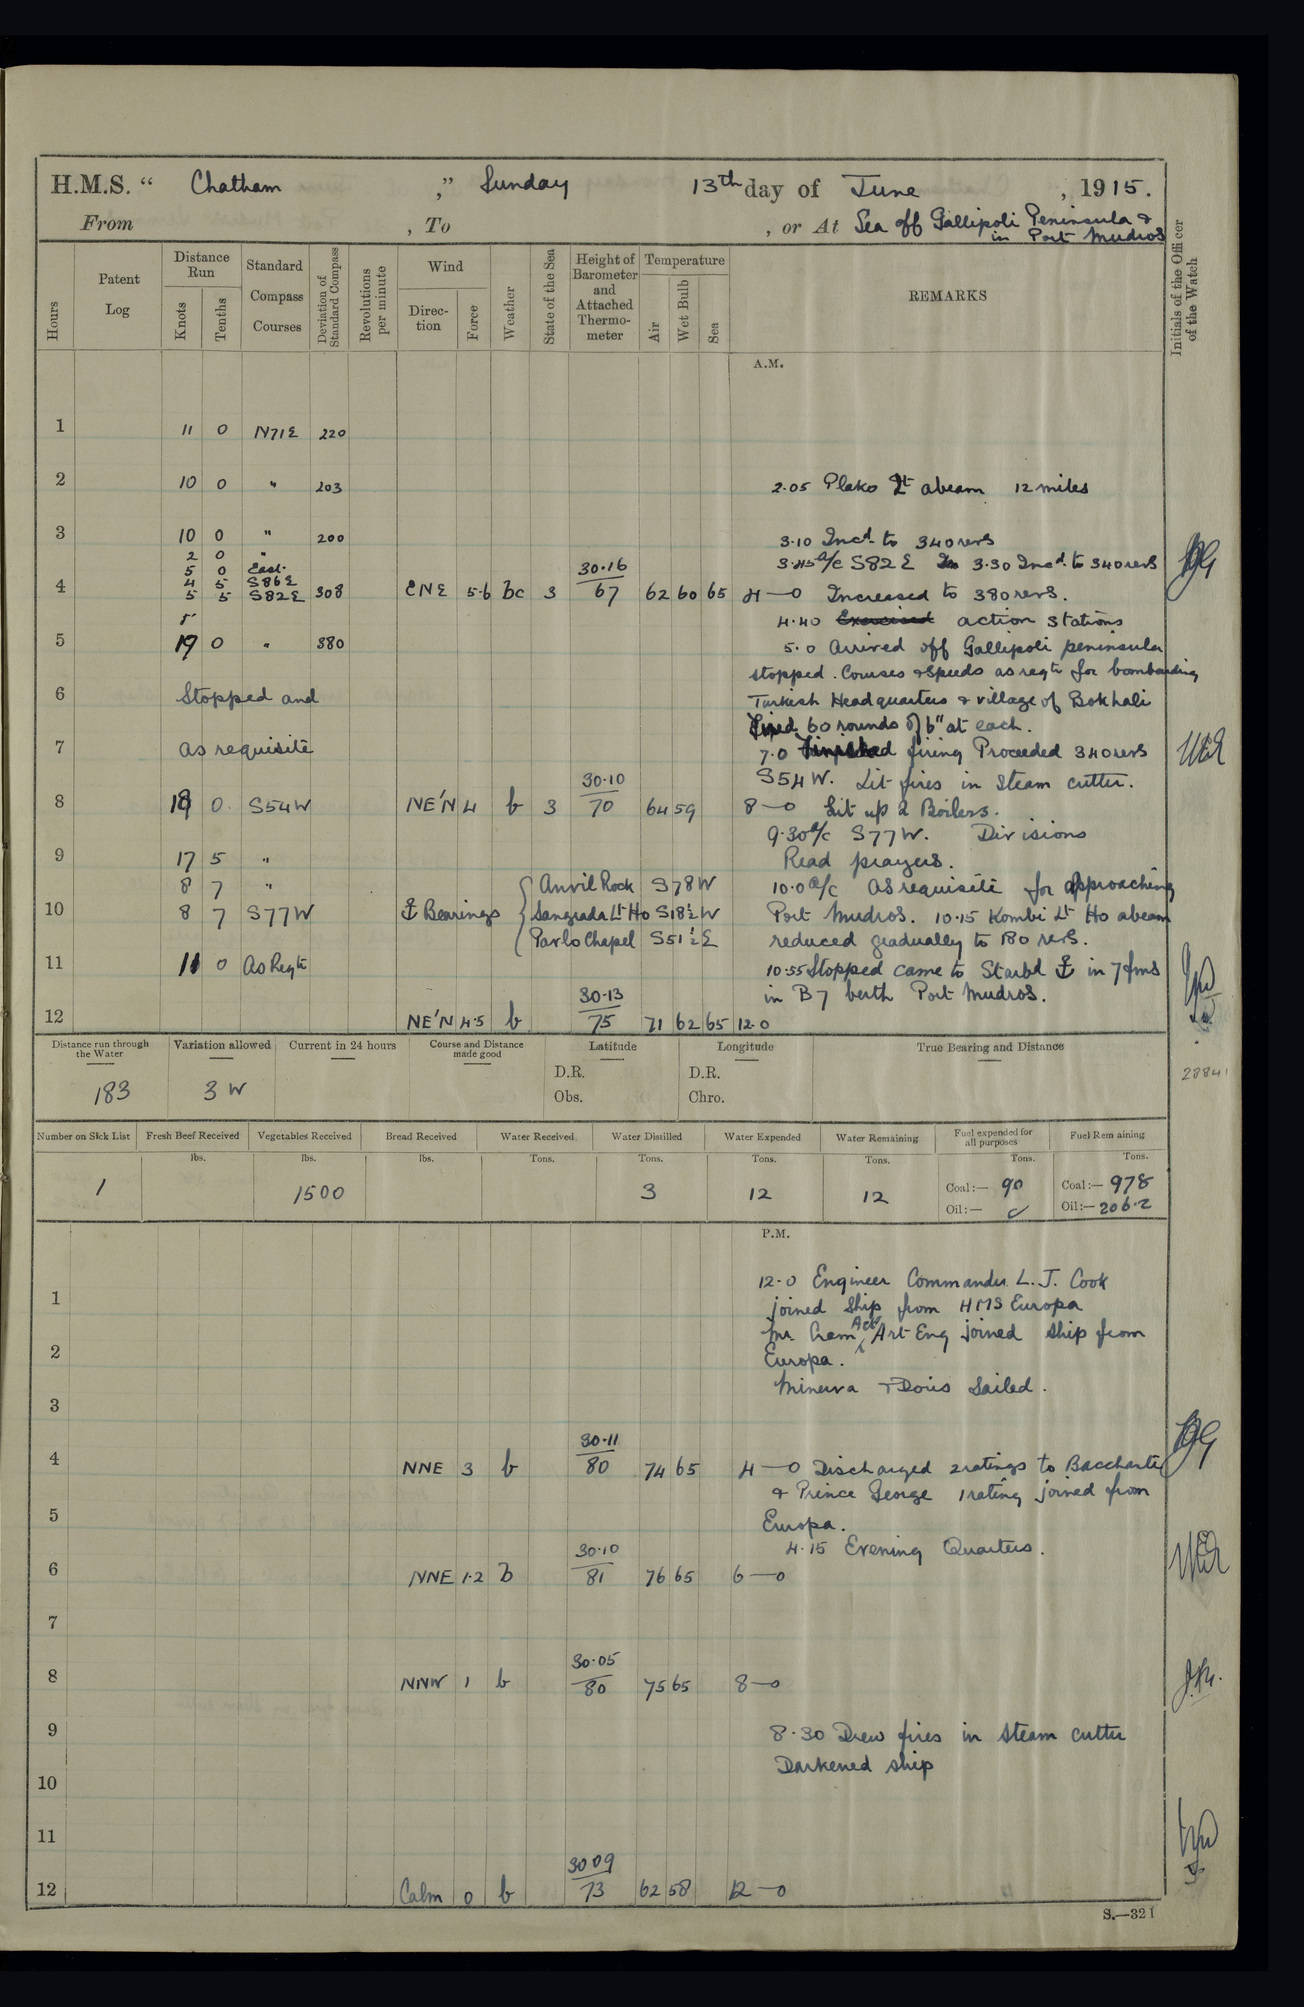 H.M.S. “ Chatham ,” Sunday 13th day of June , 1915.
From , To , or At Sea off Gallipoli Peninsula &
in Port Mudros
Hours Patent Log Distance Run Knots Tenths Standard Compass Courses Deviation of Standard Compass Revolutions per minute Wind Direc-tion Force Weather State of the Sea Height of Barometer and Attached Thermo-meter Temperature Air Wet Bulb Sea REMARKS Initials of the Officer of the Watch
A.M.
1 11 0 N71E 220
2 10 0 " 203 2.05 Plako Lt abeam 12 miles
3 10 0 " 200 3.10 Incd. to 340 revs
2 0 "
5 0 East. 30.16 3.45 a/c S82E 3.30 Incd. to 340 revs
4 5 S86E
4 5 5 S82E 308 ENE 5.6 bc 3 67 62 60 65 4—0 Increased to 380 revs.
4.40 Exercised action stations
5 19 0 " 380 5.0 Arrived off Gallipoli peninsula
stopped. Courses & Speeds as reqte for bombarding
6 Stopped and Turkish Headquarters & village of Bokhali
Fired 60 rounds of 6" at each.
7 as requisite 7.0 Finished firing Proceeded 340 revs
30.10 S54W. Lit fires in Steam cutter.
8 19 0 S54W NE'N 4 b 3 70 64 59 8—0 Lit up 2 Boilers.
9.30 a/c S77W. Divisions
9 17 5 " Read prayers.
8 7 " Anvil Rock S78W 10.0 a/c as requisite for approaching
10 8 7 S77W Bearings Sangrada Lt Ho S18½W Port Mudros. 10.15 Kombi Lt Ho abeam
Pavlo Chapel S51½E reduced gradually to 180 revs.
11 11 0 As Reqte 10.55 Stopped came to Starbd ⚓ in 7 fms
30.13 in B7 berth Port Mudros.
12 NE'N 4.5 b 75 71 62 65 12.0
Distance run through the Water Variation allowed Current in 24 hours Course and Distance made good Latitude Longitude True Bearing and Distance
183 3 W D.R. D.R.
Obs. Chro.
28841
Number on Sick List Fresh Beef Received Vegetables Received Bread Received Water Received Water Distilled Water Expended Water Remaining Fuel expended for all purposes Fuel Remaining
lbs. lbs. lbs. Tons. Tons. Tons. Tons. Tons. Tons.
1 1500 3 12 12 Coal:— 90 Coal:— 978
Oil:— Oil:— 206.2
P.M.
12.0 Engineer Commander L. J. Cook
1 joined Ship from HMS Europa
Mr. Cram Actg Art Eng joined ship from
2 Europa.
Minerva & Doris Sailed.
3
30.11
4 NNE 3 b 80 74 65 4—0 Discharged 2 ratings to Bacchante
& Prince George 1 rating joined from
5 Europa.
30.10 4.15 Evening Quarters.
6 NNE 1.2 b 81 76 65 6—0
7
30.05
8 NNW 1 b 80 75 65 8—0
9 8.30 Drew fires in steam cutter
Darkened ship
10
11
30 09
12 Calm 0 b 73 62 58 12—0
S.—321